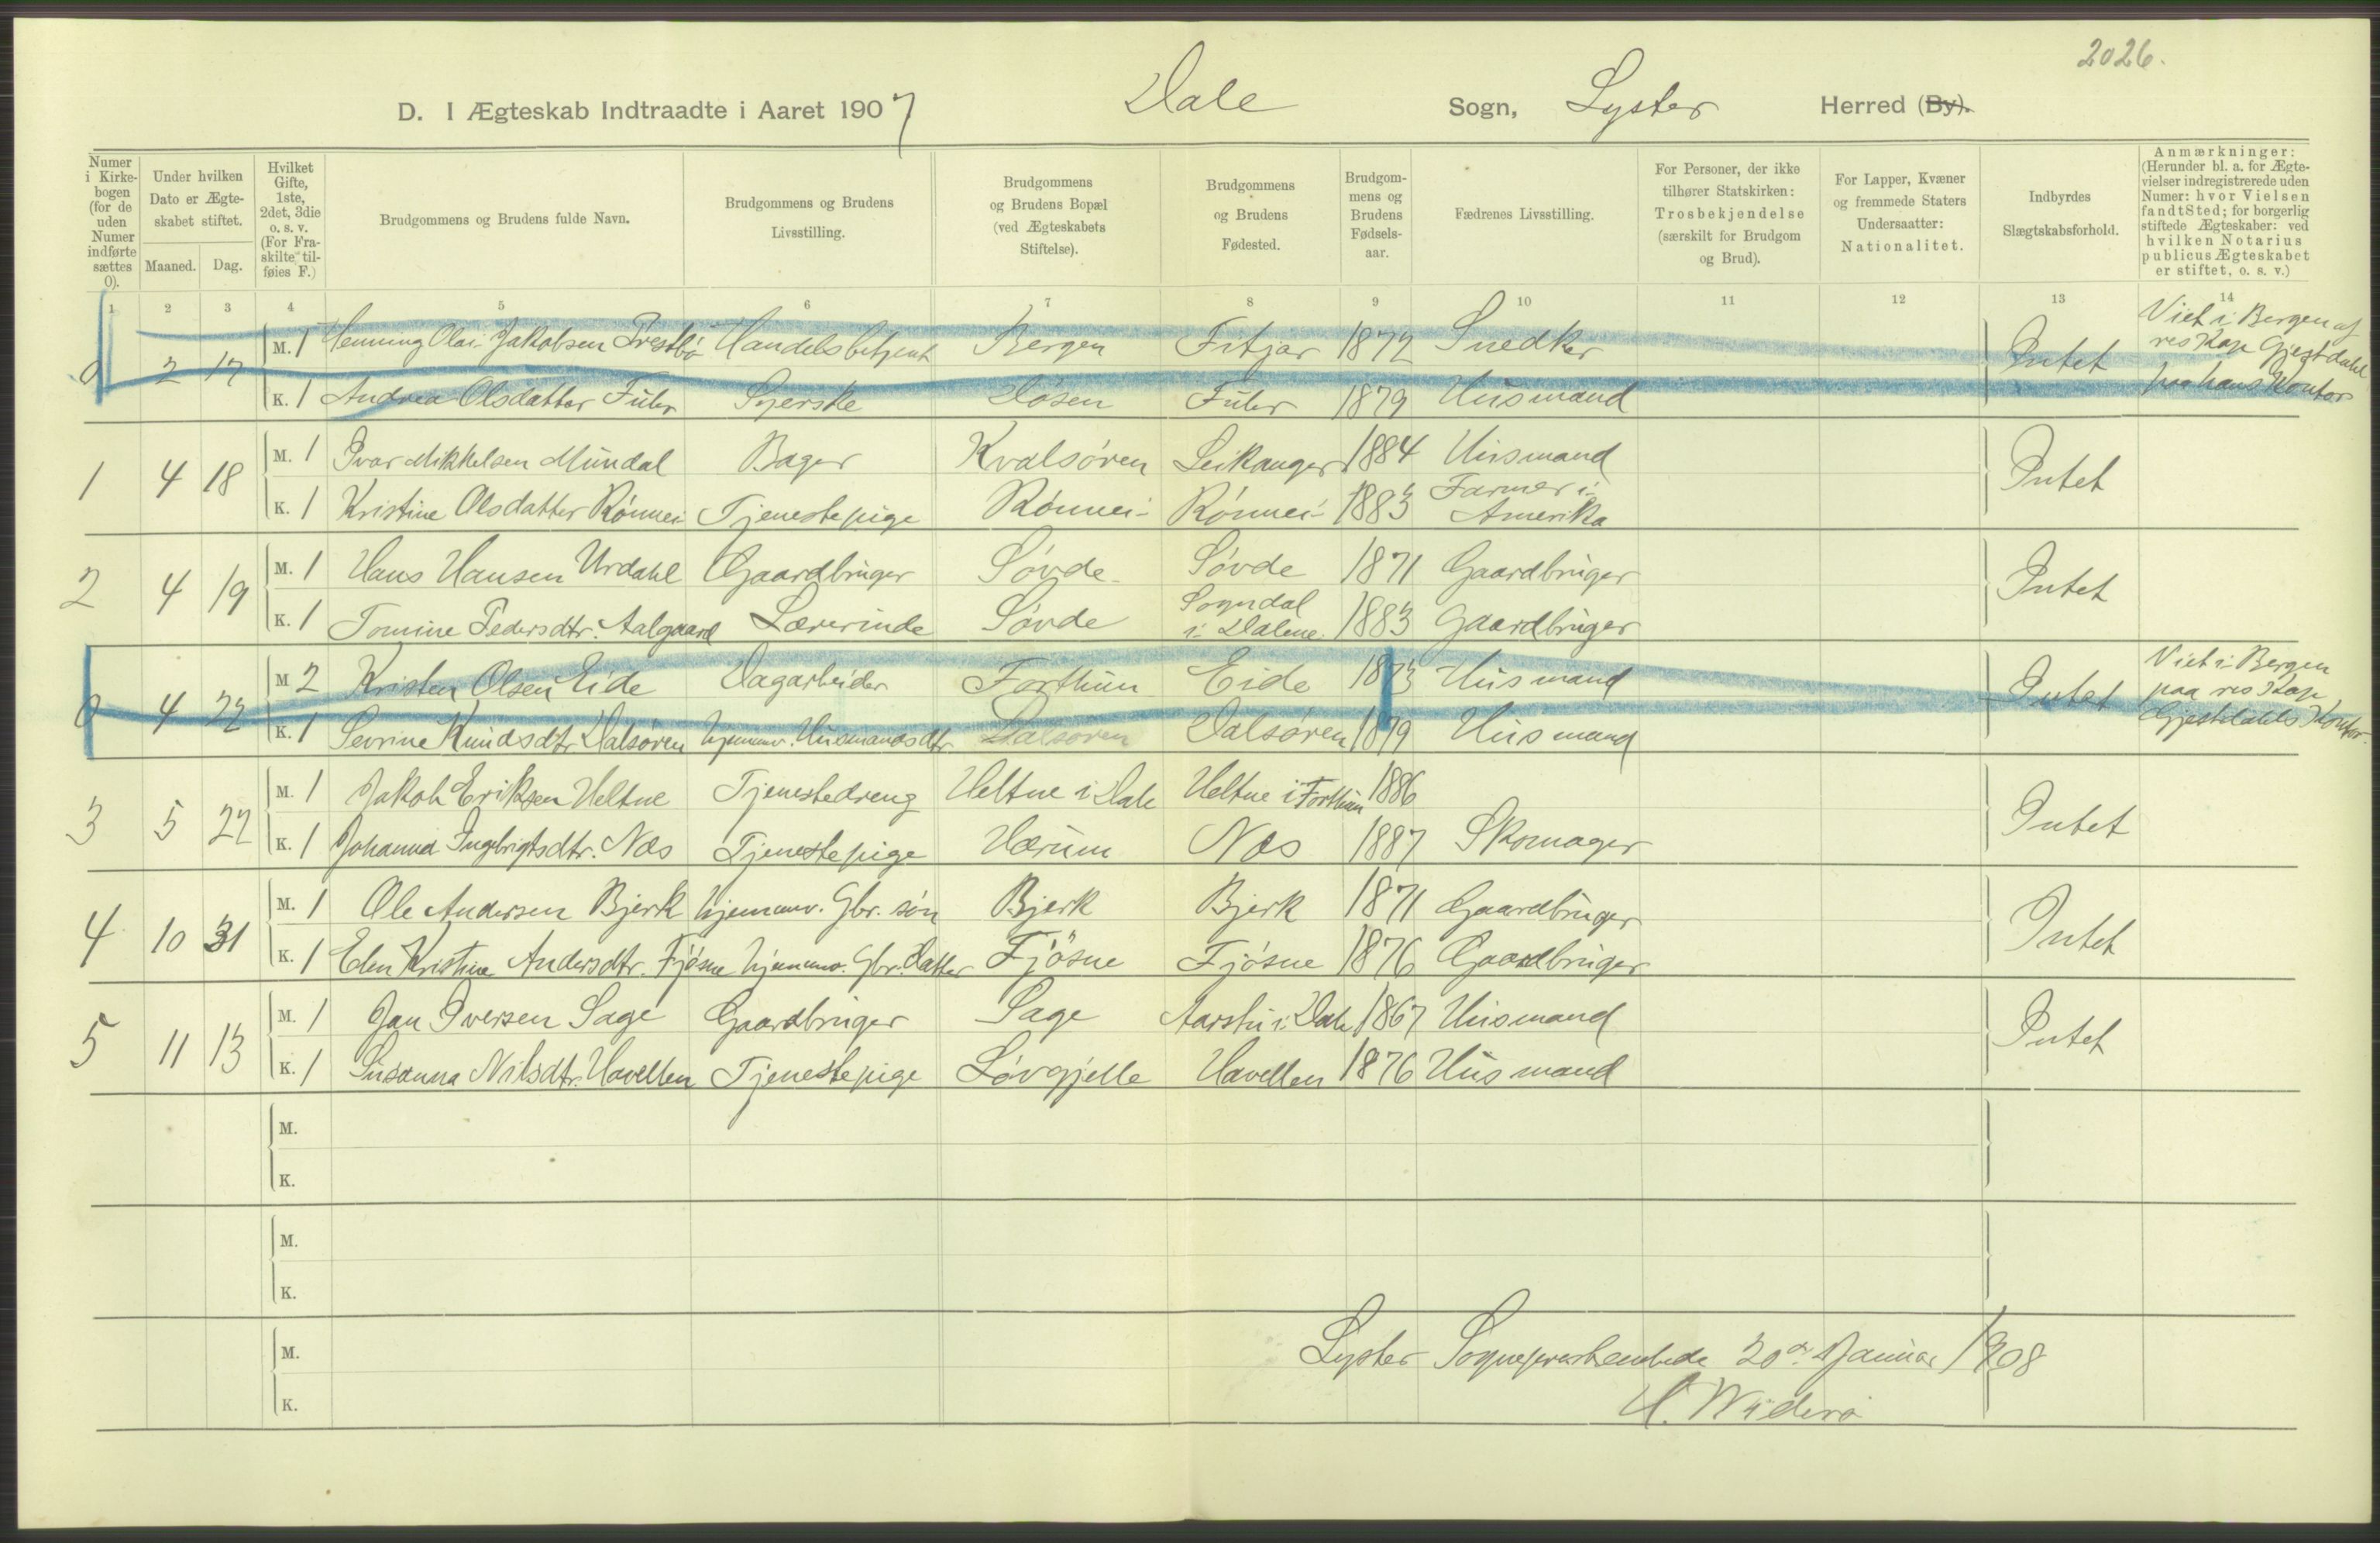 2026.
D. I Ægteskab Indtraadte i Aaret 1907 Dale Sogn, Lyster Herred (By).
Numer i Kirkebogen (for de uden Numer indførte sættes 0).
Under hvilken Dato er Ægteskabet stiftet.
Maaned. Dag.
Hvilket Gifte, 1ste, 2det, 3die o. s. v. (For Fraskilte tilføies F.)
Brudgommens og Brudens fulde Navn.
Brudgommens og Brudens Livsstilling.
Brudgommens og Brudens Bopæl (ved Ægteskabets Stiftelse).
Brudgommens og Brudens Fødested.
Brudgommens og Brudens Fødselsaar.
Fædrenes Livsstilling.
For Personer, der ikke tilhører Statskirken: Trosbekjendelse (særskilt for Brudgom og Brud).
For Lapper, Kvæner og fremmede Staters Undersaatter: Nationalitet.
Indbyrdes Slægtskabsforhold.
Anmærkninger: (Herunder bl. a. for Ægtevielser indregistrerede uden Numer: hvor Vielsen fandt Sted; for borgerlig stiftede Ægteskaber: ved hvilken Notarius publicus Ægteskabet er stiftet, o. s. v.)
1 2 3 4 5 6 7 8 9 10 11 12 13 14
0 2 17 M. 1 Henning Olai Jakobsen Prestbø Handelsbetjent Bergen Fitjar 1872 Snedker Intet Viet i Bergen af res Kap Gjestdahl paa hans Kontor
K. 1 Andrea Olsdatter Fuhr Syerske Døsen Fuhr 1879 Husmand
1 4 18 M. 1 Ivar Mikkelsen Mundal Bager Kvalsøren Leikanger 1884 Husmand Intet
K. 1 Kristine Olsdatter Rønnei Tjenestepige Rønnei Rønnei 1883 Farmer i Amerika
2 4 19 M. 1 Hans Hansen Urdahl Gaardbruger Søvde Søvde 1871 Gaardbruger Intet
K. 1 Tomine Pedersdtr. Aalgaard Lærerinde Søvde Sogndal i Dalene 1883 Gaardbruger
0 4 22 M 2 Kristen Olsen Eide Dagarbeider Forthun Eide 1873 Husmand Intet Viet i Bergen paa res Kap Gjestdahls Kontor.
K. 1 Sevrine Knudsdtr Dalsøren hjemmv. Husmandsdtr. Dalsøren Dalsøren 1879 Husmand
3 5 22 M. 1 Jakob Eriksen Heltne Tjenestedreng Heltne i Dale Heltne i Forthun 1886 Intet
K. 1 Johanna Ingbrigtsdtr. Næs Tjenestepige Hærum Næs 1887 Skomager
4 10 31 M. 1 Ole Andersen Bjerk hjemmv. Gbr. søn Bjerk Bjerk 1871 Gaardbruger Intet
K. 1 Elen Kristine Andersdtr. Fjøsne hjemmv. Gbr. Datter Fjøsne Fjøsne 1876 Gaardbruger
5 11 13 M. 1 Jan Iversen Sage Gaardbruger Sage i Dale 1867 Husmand Intet
K. 1 Susanna Nilsdtr. Havellen Tjenestepige Løvgjelle Havellen 1876 Husmand
M.
K.
M.
K.
M.
K.
Lyster Sogneprestembede 20de Januar 1908